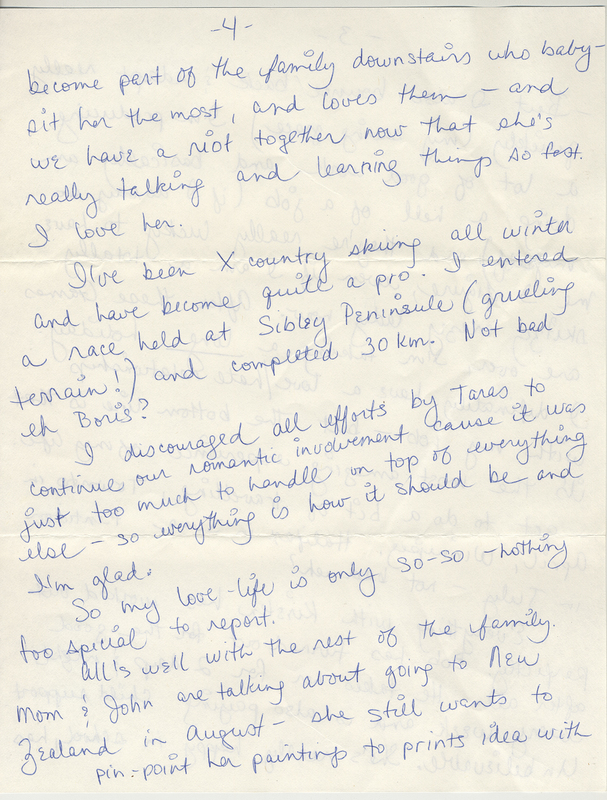 -4-
become part of the family downstairs who baby-
sit her the most, and loves them - and
we have a riot together now that she's
really talking and learning things so fast.
I love her.
I've been X country skiing all winter
and have become quite a pro. I entered
a race held at Sibley Peninsule (grueling
terrain!) and completed 30 km. Not bad
eh Boris?
I discouraged all efforts by Taras to
continue our romantic involvement cause it was
just too much to handle on top of everything
else - so everything is how it should be and
I'm glad.
So my love-life is only so-so - nothing
too special to report.
All's well with the rest of the family.
Mom & John are talking about going to New
Zealand in August - she still wants to
pin-point her paintings to prints idea with